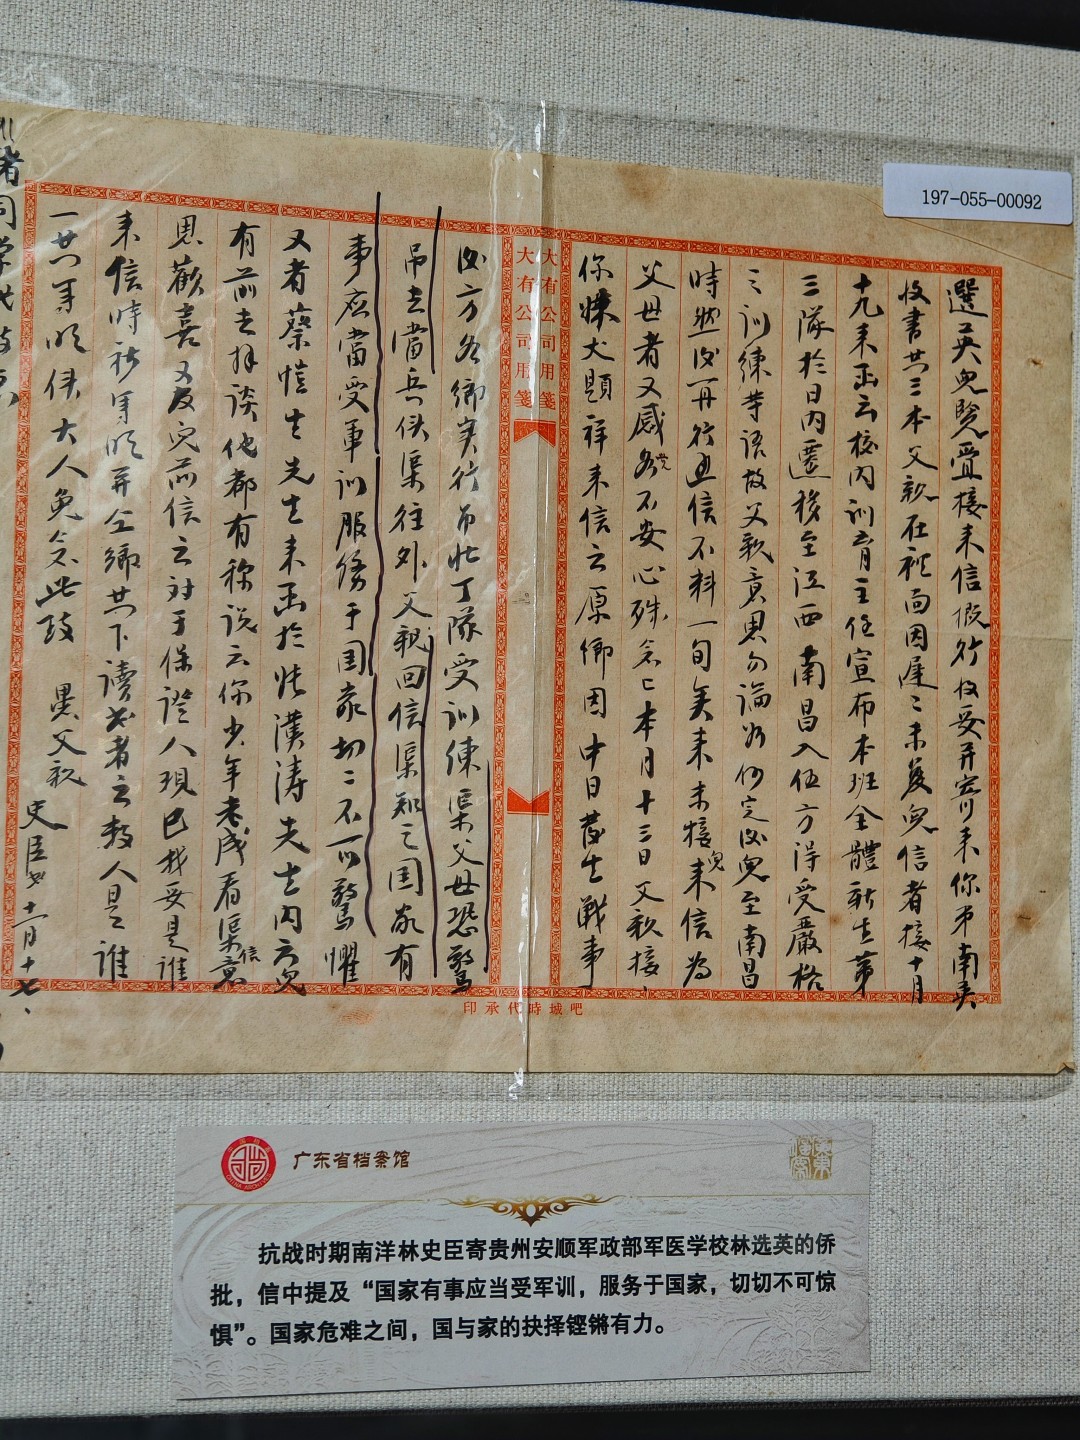 197-055-00092
選英兒覽壹接来信概行收妥并寄来你弟南英
收書廿三本父親在裡面因遲〻未發兒信者接十月
十九来函云校内訓育主任宣布本班全體新生第
三隊於日内遷移至江西南昌入伍方淂受嚴格
之訓練等語故父親意思勿論如何定必兒至南昌
時然必再行通信不料一旬矣来未接兒来信为
父母者又感觉不安心殊念〻本月十三日父親接
你妹犬題祥来信云原鄉因中日發生戰事
大有公司用箋
大有公司用箋
政方各鄉实行吊壯丁隊受训練渠父母恐驚
吊去當兵使渠往外父親回信渠知之国家有
事应當受軍训服務于国家切〻不可驚懼
又者蔡愷生先生来函於張漢涛先生内云兒
有前去拜谈他都有称说云你少年老成看渠信意
思歡喜又及兒前信云对于保證人現已找妥是誰
来信時祈寫明并仝鄉廿下讀书者之教人是誰
一廿寫明使大人免念此致 愚父親
史臣字十一月十七
吧城時代承印
广东省档案馆
抗战时期南洋林史臣寄贵州安顺军政部军医学校林选英的侨
批，信中提及“国家有事应当受军训，服务于国家，切切不可惊
惧”。国家危难之间，国与家的抉择铿锵有力。